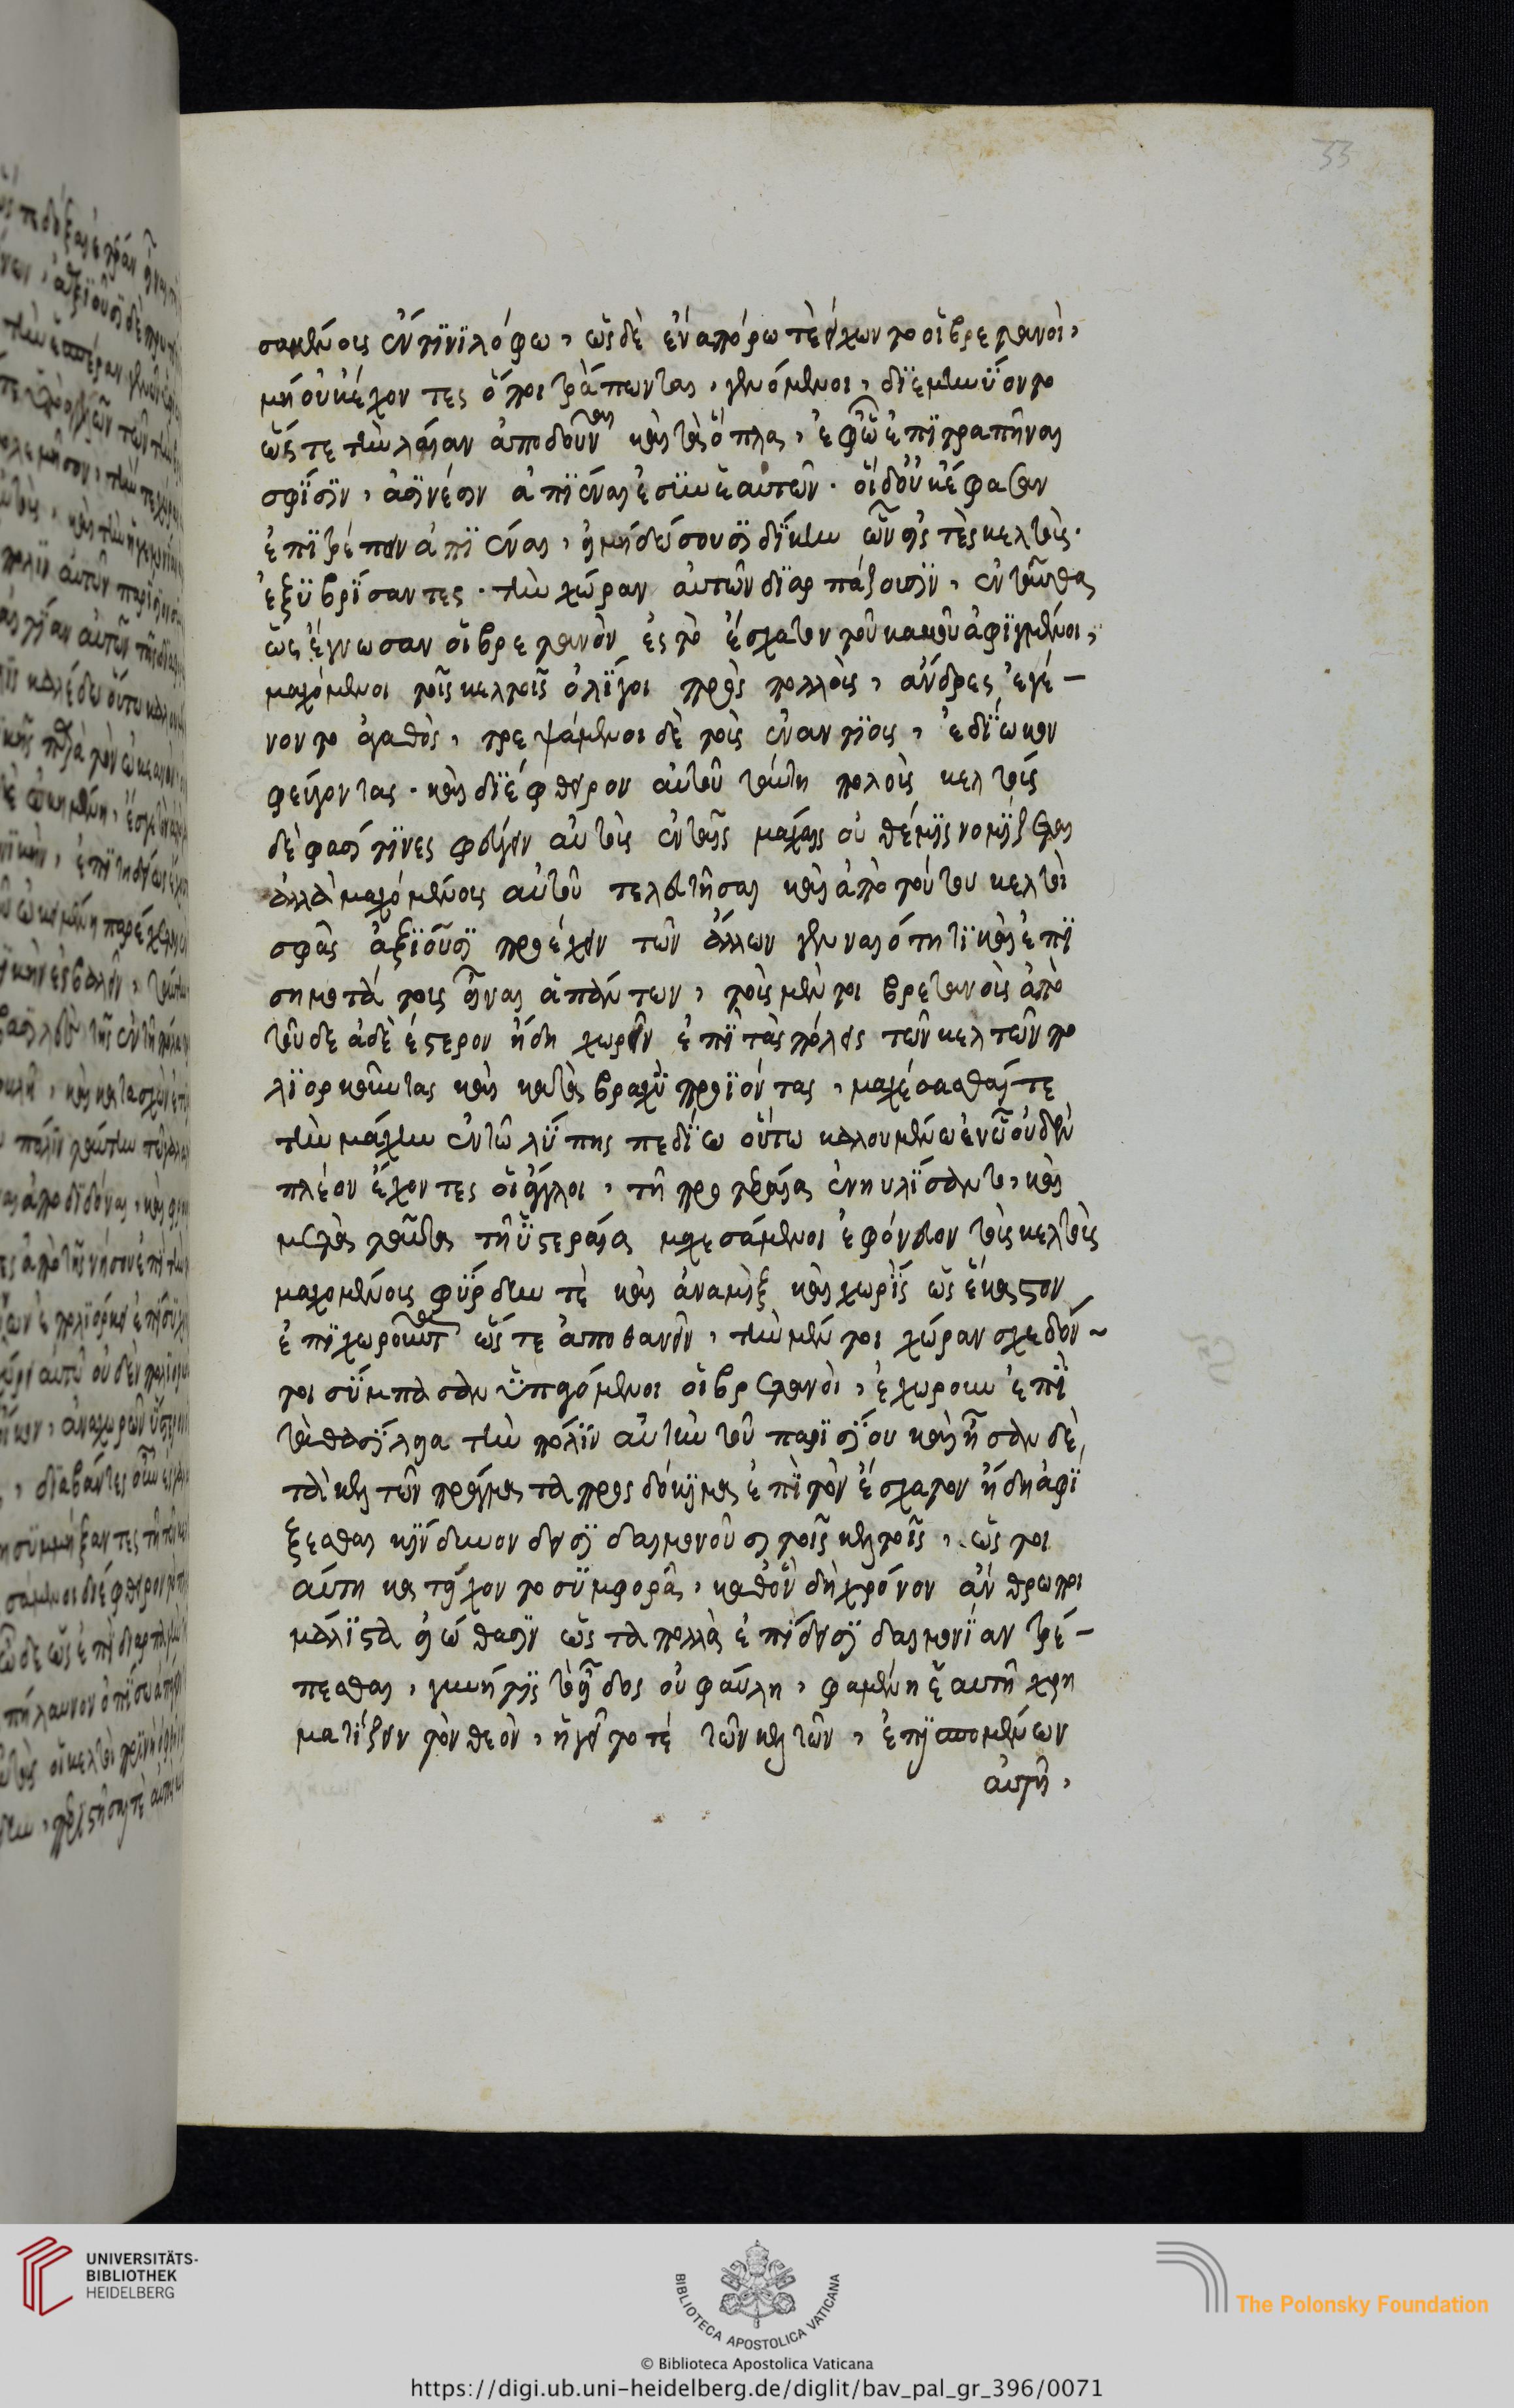 33
σαμένοις ἔν τινι λόφω, ὡς δὲ ἐν ἀπόρω τὲ εἴχοντο οἱ βρετανοὶ,
μὴ οὐκ ἔχοντες ὅποι τράπωνται, γενόμενοι, διεμηνύοντο
ὥς τε τὴν λείαν ἀποδοῦναι καὶ τὰ ὅπλα, ἐφ ὧ ἐπιτραπῆναι
σφίσιν, ἀσινέσιν ἀπιέναι ἐς τὴν ἑαυτῶν. οἱ δ οὐκ ἔφασαν
ἐπιτρέπειν ἀπιέναι, εἰ μὴ δώσουσι δίκην ὧν εἰς τοὺς κελτοὺς.
ἐξυβρίσαντες. τὴν χώραν αὐτῶν διαρπάζουσιν, ἐνταῦθα
ὡς ἔγνωσαν οἱ βρετανὸν ἐς τὸ ἔσχατον τοῦ κακοῦ ἀφιγμένοι,
μαχόμενοι τοῖς κελτοῖς ὀλίγοι πρὸς πολλοὺς, ἄνδρες ἐγέ-
νοντο ἀγαθοὶ, τρεψάμενοι δὲ τοὺς ἐναντίους, ἐδίωκον
φεύγοντας. καὶ διέφθειρον αὐτοῦ ταύτη πολοὺς κελτοὺς
δέ φασί τινες φεύγειν αὐτοὺς ἐν ταῖς μάχαις οὐ θέμις νομίζεται
ἀλλὰ μαχομένους αὐτοῦ τελευτῆσαι καὶ ἀπὸ τούτου κελτοὶ
σφᾶς ἀξιοῦσι προέχειν τῶν ἄλλων γενναιότητι καὶ ἐπι
σημοτάτοις εἶναι ἁπάντων, τοὺς μέν τοι βρετανοὺς ἀπὸ
τοῦδε ἀδεέστερον ἤδη χωρεῖν ἐπὶ τὰς πόλεις τῶν κελτῶν πο
λιορκοῦντας καὶ κατὰ βραχὺ προϊόντας, μαχέσασθαί τε
τὴν μάχην ἐν τῶ λύπης πεδίω οὕτω καλουμένω ἐν ὧ οὐδὲν
πλέον ἔχοντες οἱ ἄγγλοι, τῆ προτεραία ἐνηυλίσαντο, καὶ
μετὰ ταῦτα τῆ ὑστεραία μαχεσάμενοι ἐφόνευον τοὺς κελτοὺς
μαχομένους φύρδην τὲ καὶ ἀναμὶξ καὶ χωρὶς ὡς ἕκαστον
ἐπιχωροῦντας ὥς τε ἀποθανεῖν, τὴν μέν τοι χώραν σχεδόν-
τοι σύμπασαν ὑπαγόμενοι οἱ βρετανοὶ, ἐχώρουν ἐπὶ
τὰ βασίλεια τὴν πόλιν αὐτὴν τοῦ παρισίου καὶ ἦσαν δὲ,
τὰ κελτῶν πράγματα προσδόκιμα ἐπὶ τὸν ἔσχατον ἤδη ἀφί
ξεσθαι κίνδυνον δυσι δαιμονοῦσι τοῖς κελτοῖς, ὥς τοι
αὕτη κατείχοντο συμφορᾶ, καθ ὃν δὴ χρόνον ἄνθρωποι
μάλιστα εἰώθασιν ὡς τὰ πολλὰ ἐπὶ δυσι δαιμονίαν τρέ-
πεσθαι, γυνή τις τὸ εἶδος οὐ φαύλη, φαμένη ἑαυτῆ χρη
ματίζειν τὸν θεὸν, ἡγεῖτο τέ τῶν κελτῶν, ἐπισπομένων
αὐτῆ,
UNIVERSITÄTS-
BIBLIOTHEK
HEIDELBERG
BIBLIOTECA APOSTOLICA VATICANA
The Polonsky Foundation
© Biblioteca Apostolica Vaticana
https://digi.ub.uni-heidelberg.de/diglit/bav_pal_gr_396/0071